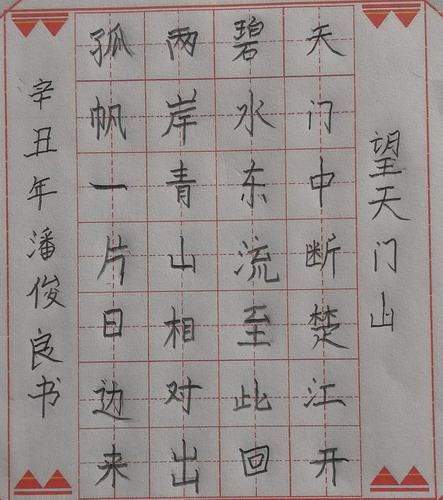 望天门山
天门中断楚江开
碧水东流至此回
两岸青山相对出
孤帆一片日边来
辛丑年潘俊良书